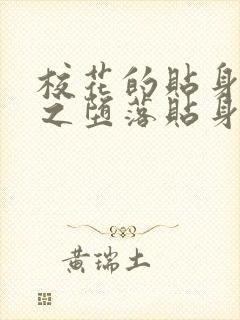 校花的貼身
之堕落貼身
黄瑞土